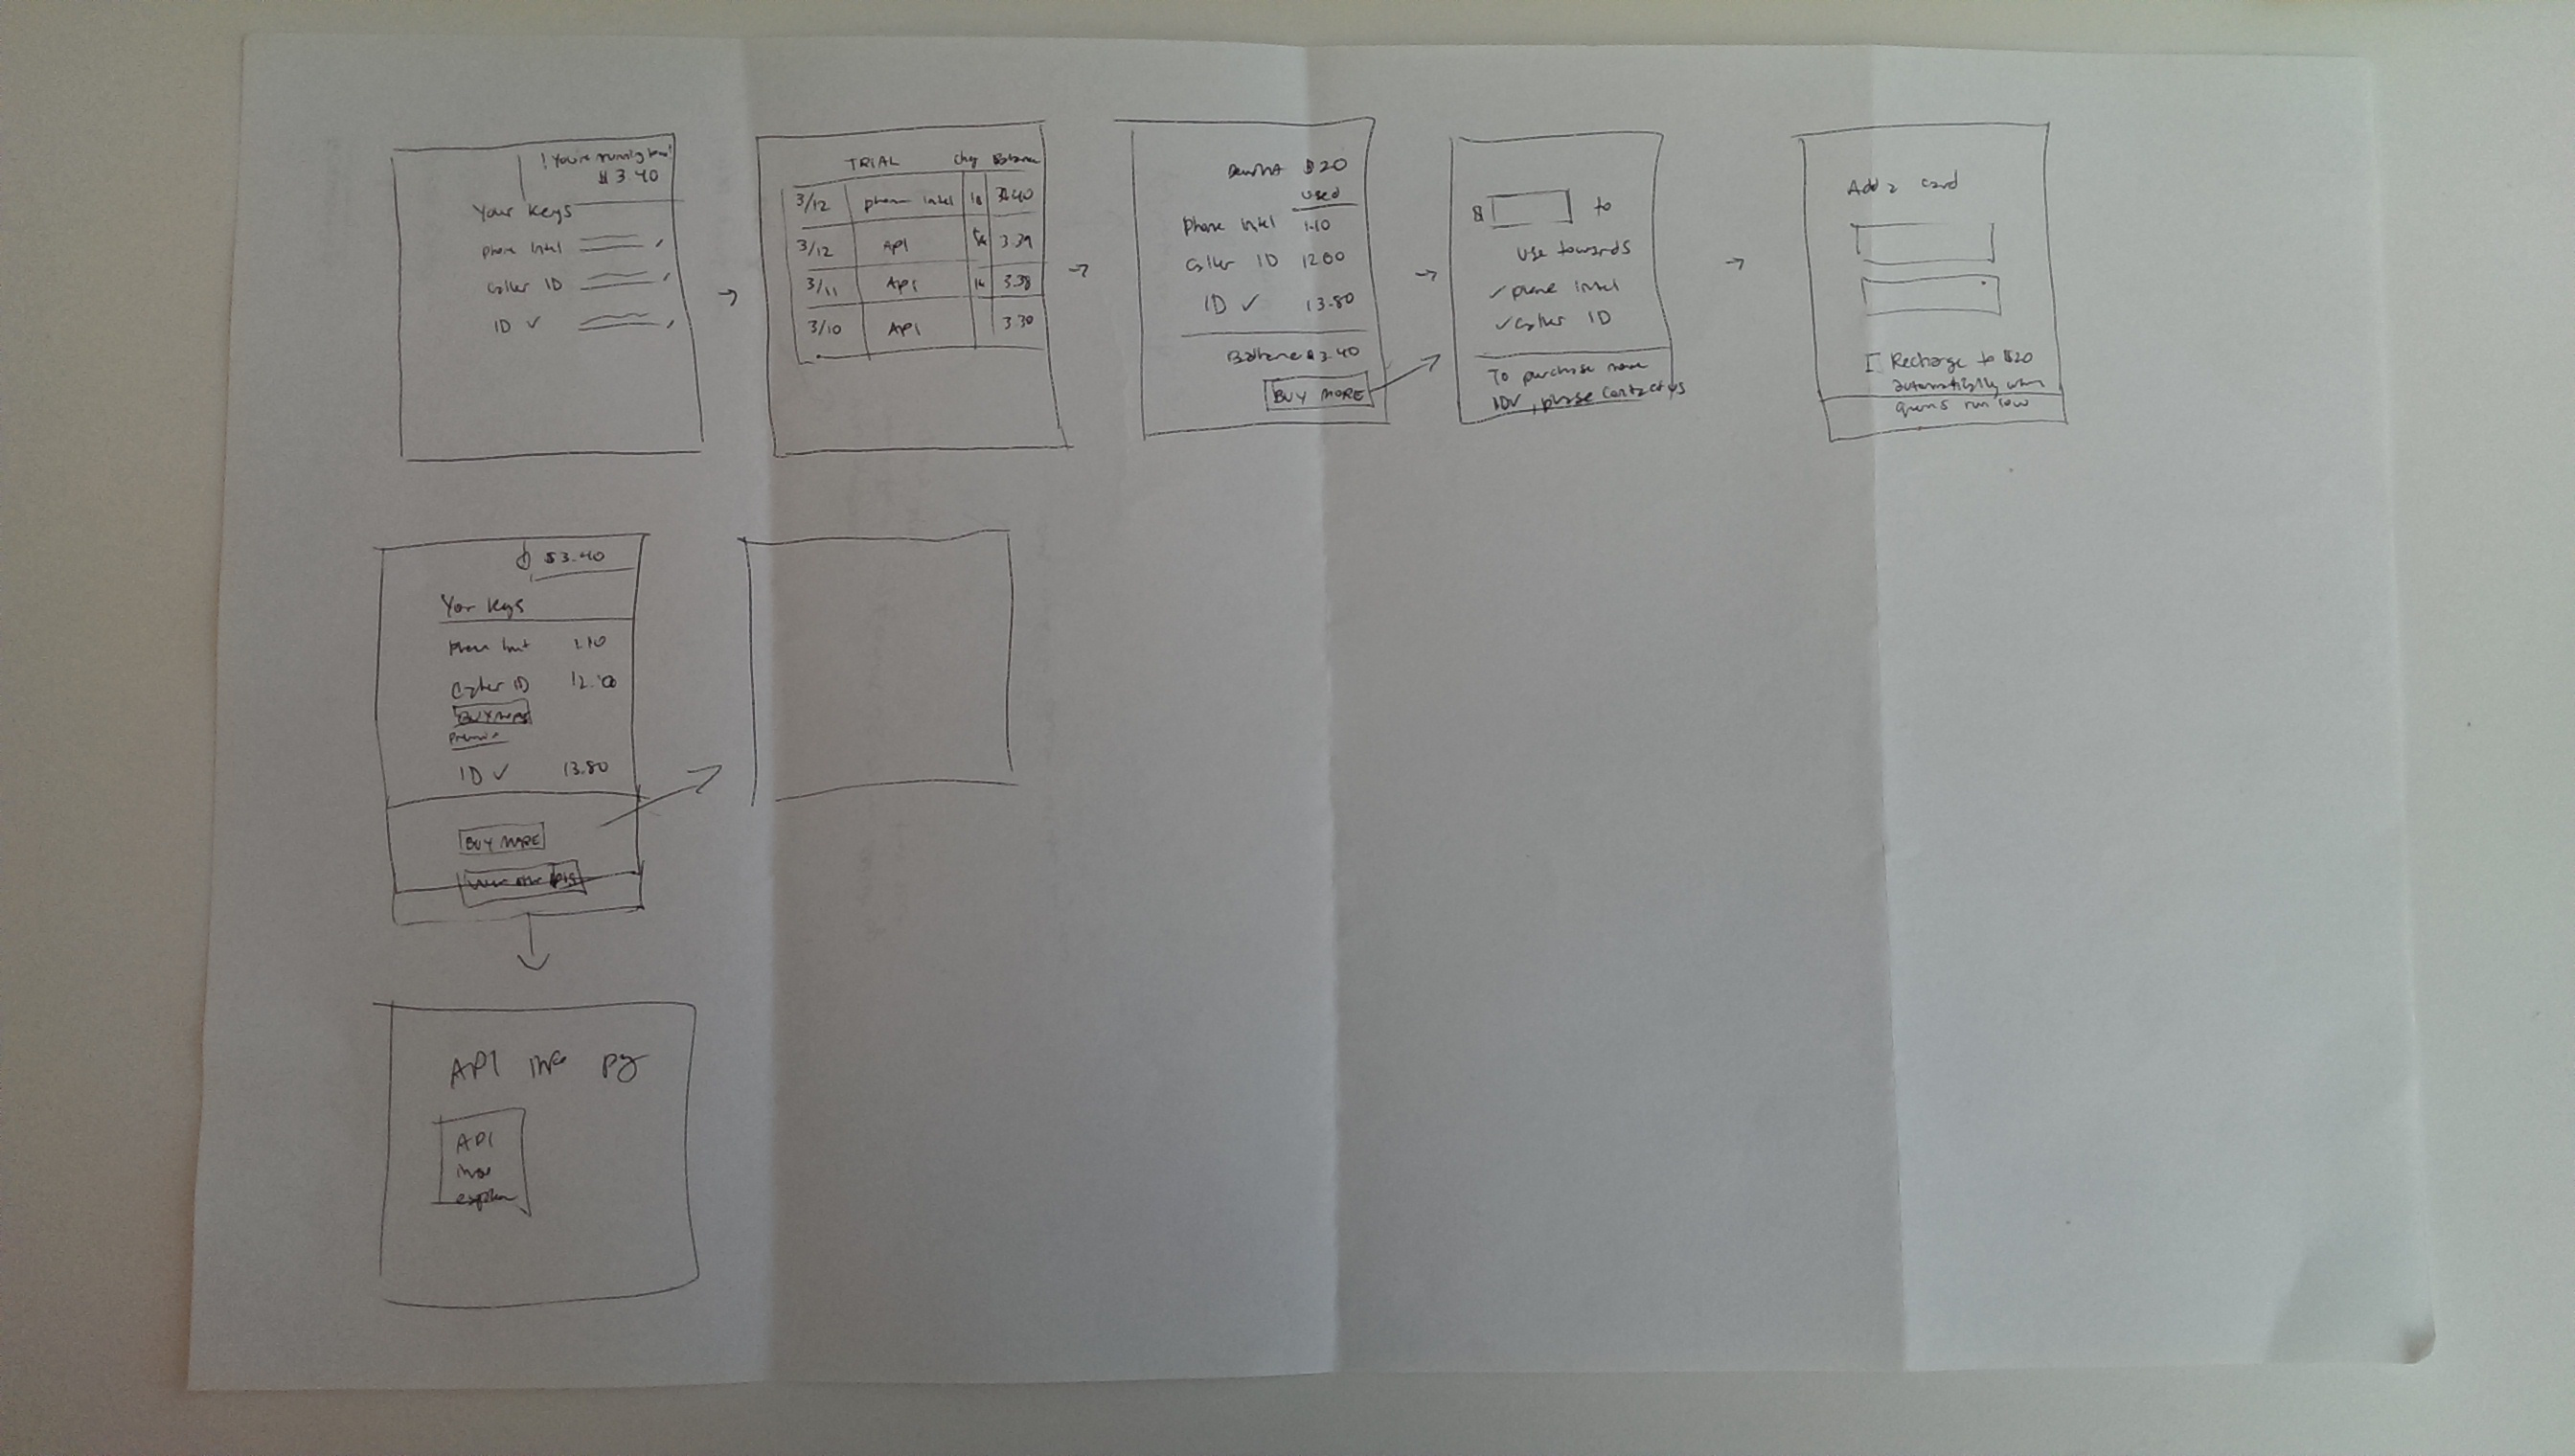 ! You're running low!
$ 3.40
Your Keys
phone Intel
Caller ID
ID ✓
TRIAL chg Balance
3/12 phone intel 1¢ 3.40
3/12 API 3.39
3/11 API 1¢ 3.38
3/10 API 3.30
$20
used
Phone Intel 1.10
Caller ID 12.00
ID ✓ 13.80
Balance $3.40
BUY MORE
$ to
use towards
✓ phone Intel
✓ Caller ID
To purchase more
IDV, please contact us
Add a card
Recharge to $20
automatically when
run low
$3.40
Your Keys
Phone Int 1.10
Caller ID 12.00
BUY MORE
Premium
ID ✓ 13.80
BUY MORE
API info pg
API